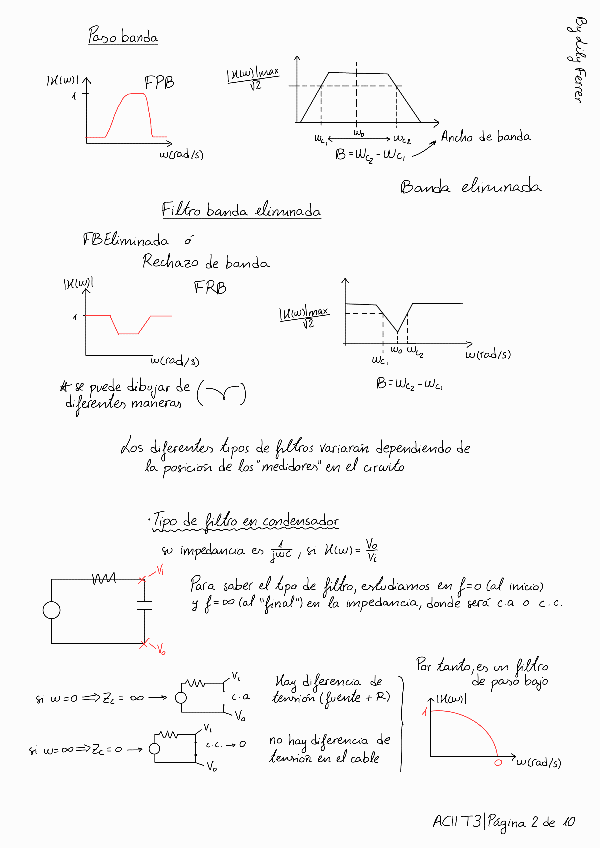 By Lily Ferrer
Paso banda
|H(w)|
FPB
1
w(rad/s)
|H(w)|max
√2
wc1
w0
wc2
B = Wc2 - Wc1
Ancho de banda
Banda eliminada
Filtro banda eliminada
FBEliminada ó
Rechazo de banda
|H(w)|
FRB
1
w(rad/s)
|H(w)|max
√2
wc1
w0
wc2
w(rad/s)
B = Wc2 - Wc1
# se puede dibujar de
diferentes maneras
Los diferentes tipos de filtros variarán dependiendo de
la posición de los "medidores" en el circuito
· Tipo de filtro en condensador
su impedancia es 1/jwc, si H(w) = Vo/Vi
Vi
Vo
Para saber el tipo de filtro, estudiamos en f=0 (al inicio)
y f=∞ (al "final") en la impedancia, donde será c.a o c.c.
si w=0 ⇒ Zc = ∞ →
Vi
c.a
Vo
Hay diferencia de
tensión (fuente + R)
si w=∞ ⇒ Zc = 0 →
Vi
c.c. → 0
Vo
no hay diferencia de
tensión en el cable
Por tanto, es un filtro
de paso bajo
|H(w)|
1
0
w(rad/s)
ACII T3|Página 2 de 10